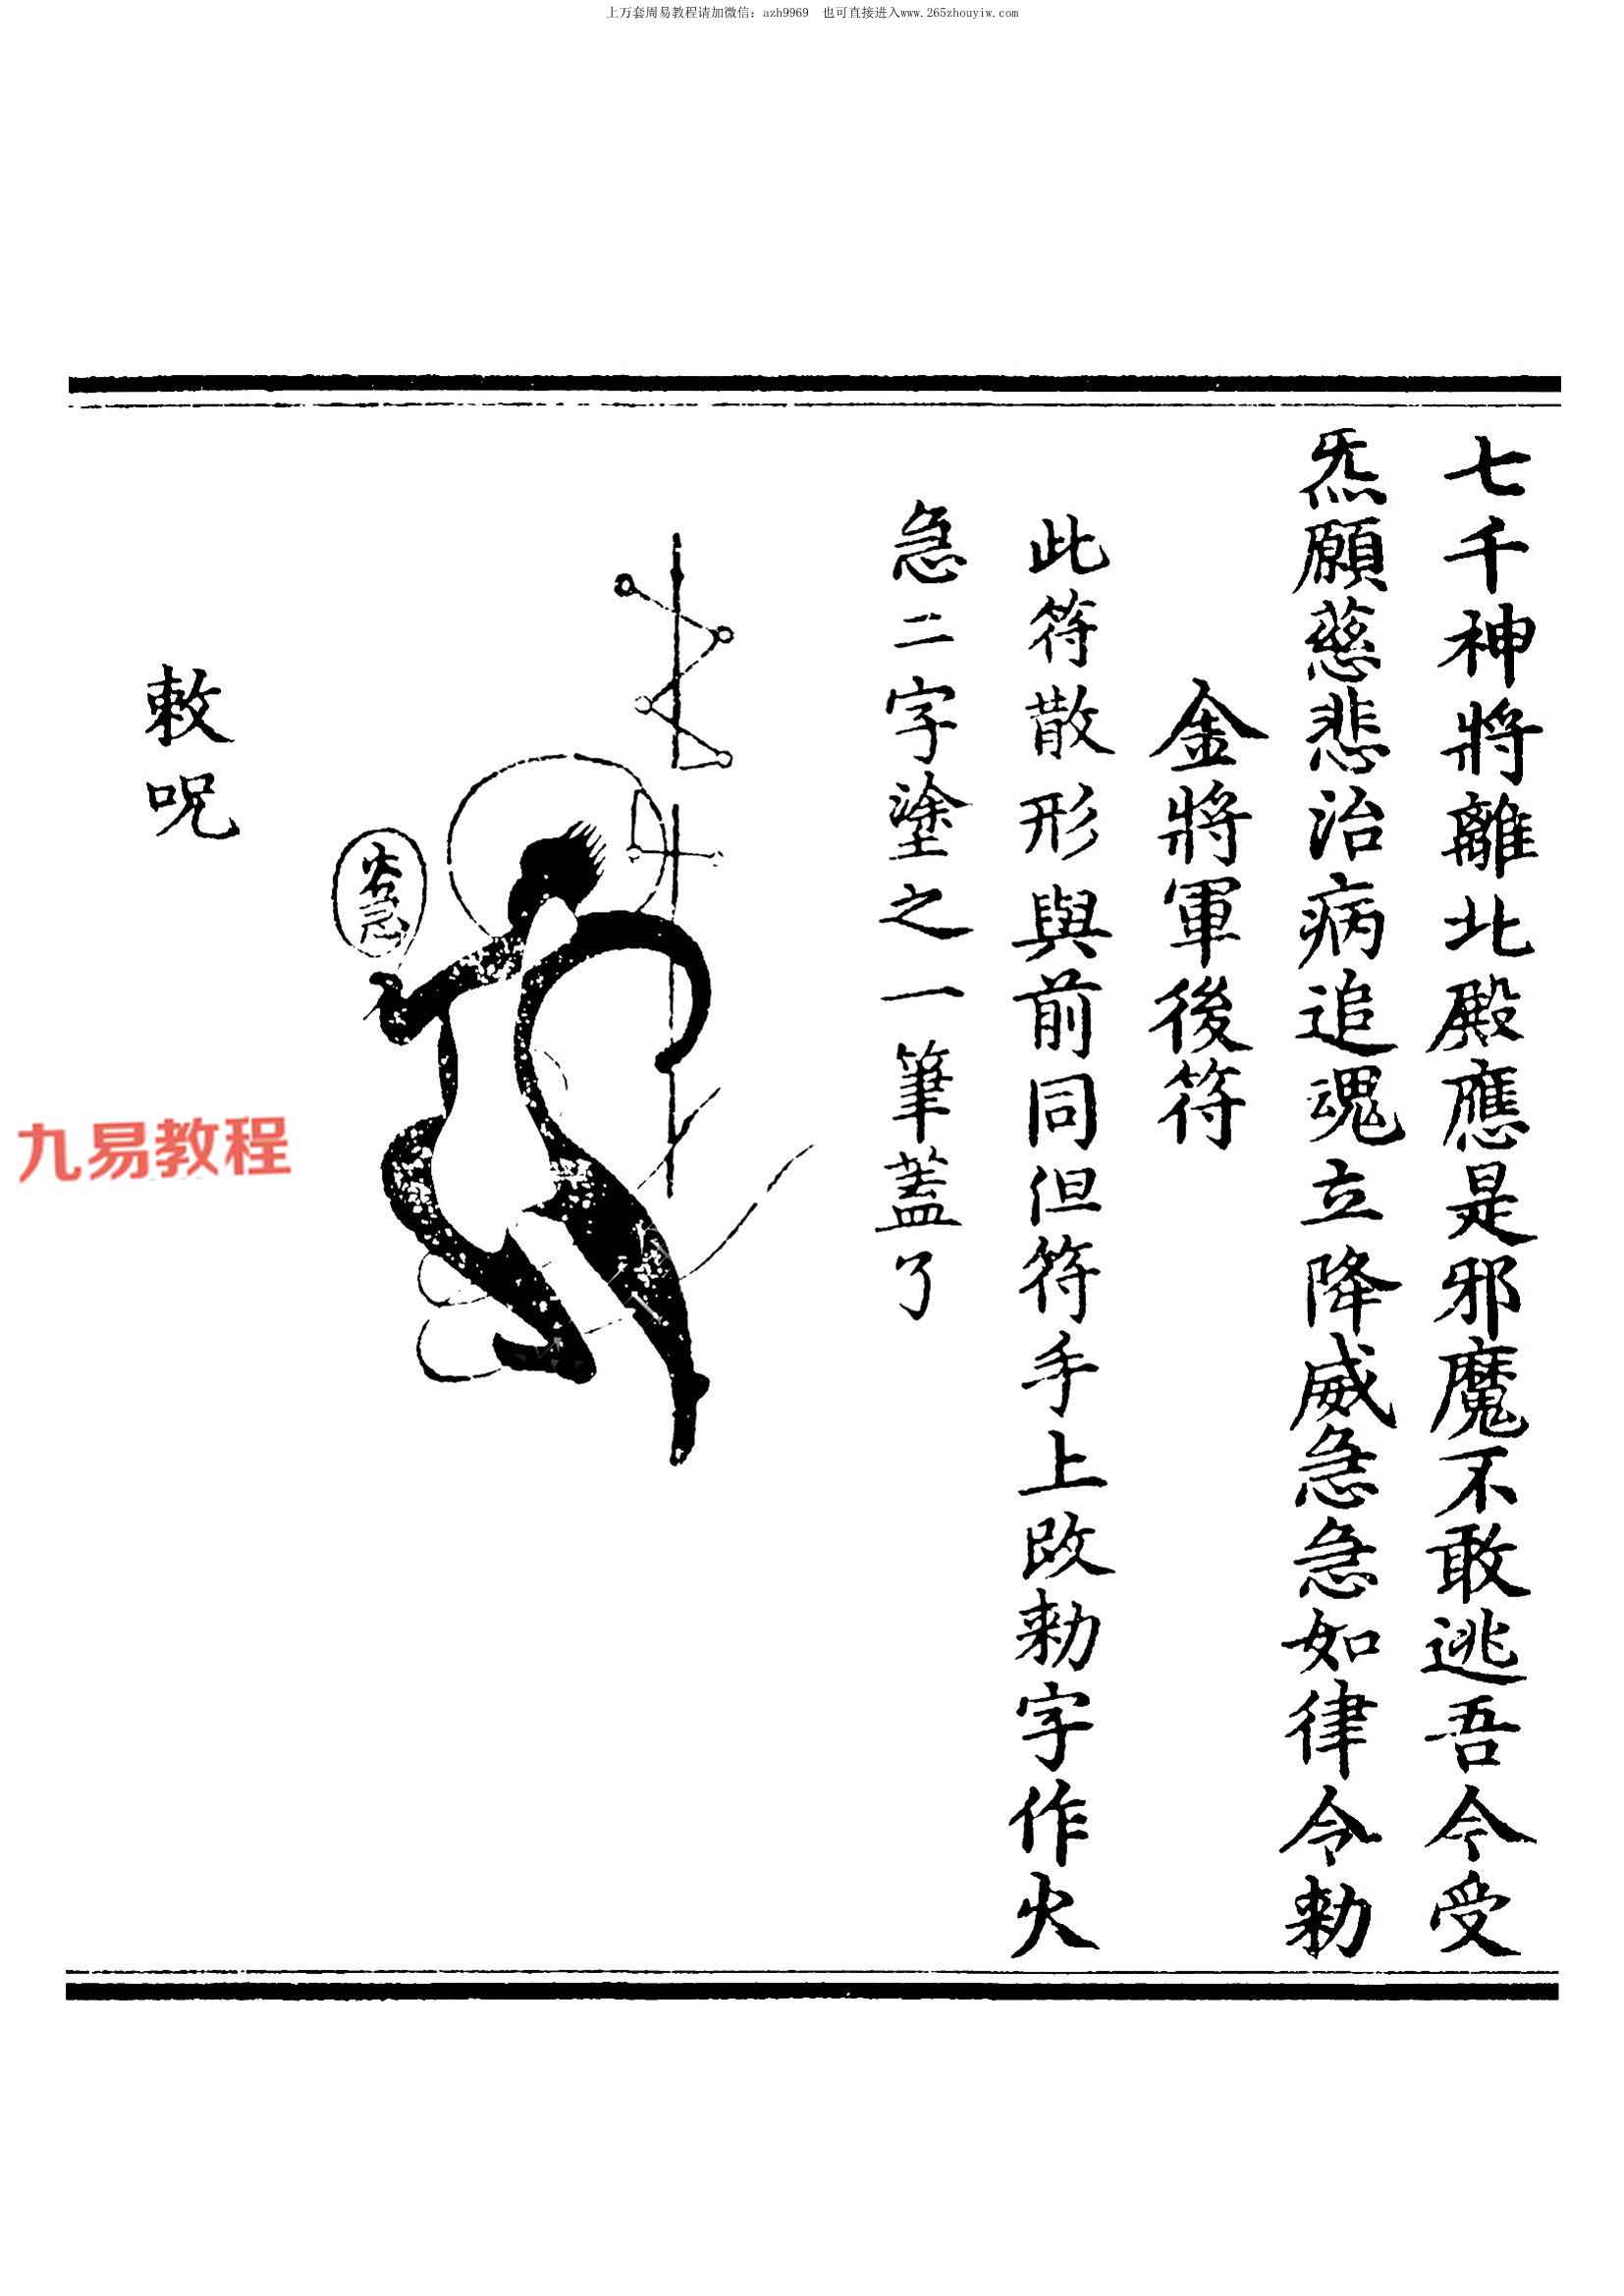 上万套周易教程请加微信: azh9969 也可直接进入www.265zhouyiw.com
七千神將離北殿應是邪魔不敢逃吾今受
炁願慈悲治病追魂立降威急急如律令勅
金將軍後符
此符散形與前同但符手上改勅字作火
急二字塗之一筆蓋了
火急
敕呪
九易教程